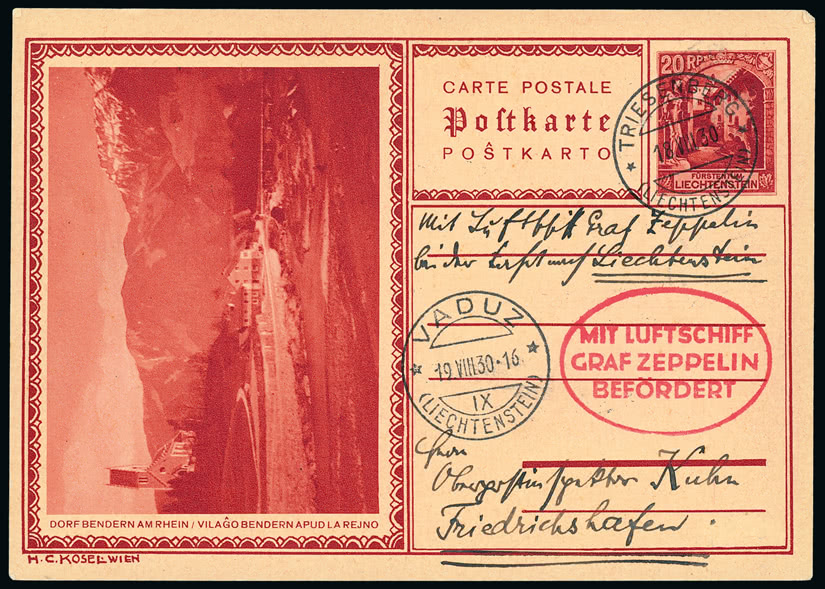 CARTE POSTALE
Postkarte
POŜTKARTO
20 RP
FÜRSTENTUM
LIECHTENSTEIN
TRIESENBERG
18 VIII 30
(LIECHTENSTEIN)
Mit Luftschiff Graf Zeppelin
bei der nach Liechtenstein
VADUZ
19 VIII 30·16
IX
(LIECHTENSTEIN)
MIT LUFTSCHIFF
GRAF ZEPPELIN
BEFÖRDERT
Herrn
Oberpostinspektor Kuhn
Friedrichshafen.
DORF BENDERN AM RHEIN / VILAĜO BENDERN APUD LA REJNO
H. C. KOSEL-WIEN